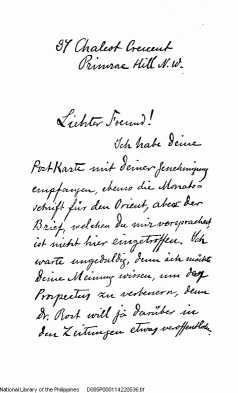 37 Chalcot Crescent
Primrose Hill N.W.
Liebster Freund!
Ich habe deine
Postkarte mit deiner Genehmigung
empfangen, ebenso die Monats-
schrift für den Orient, aber der
Brief, welchen du mir versprachest,
ist nicht hier eingetroffen. Ich
warte ungeduldig, denn ich möchte
deine Meinung wissen, um das
Prospectus zu verbessern, denn
Dr. Rost will ja darüber in
den Zeitungen etwas veröffentlich.
National Library of the Philippines